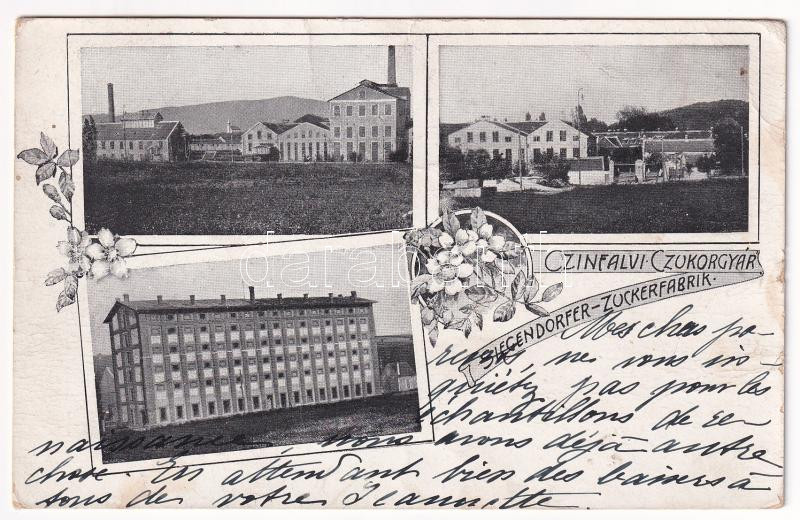 CZINFALVI CZUKORGYÁR
SIEGENDORFER-ZUCKERFABRIK.
darabanth
Mes chers pa-
rents, ne vous in-
quiétez pas pour les
échantillons de re-
naissance, nous avons déjà autre
chose. En attendant bien des baisers à
tous de votre Jeannette.